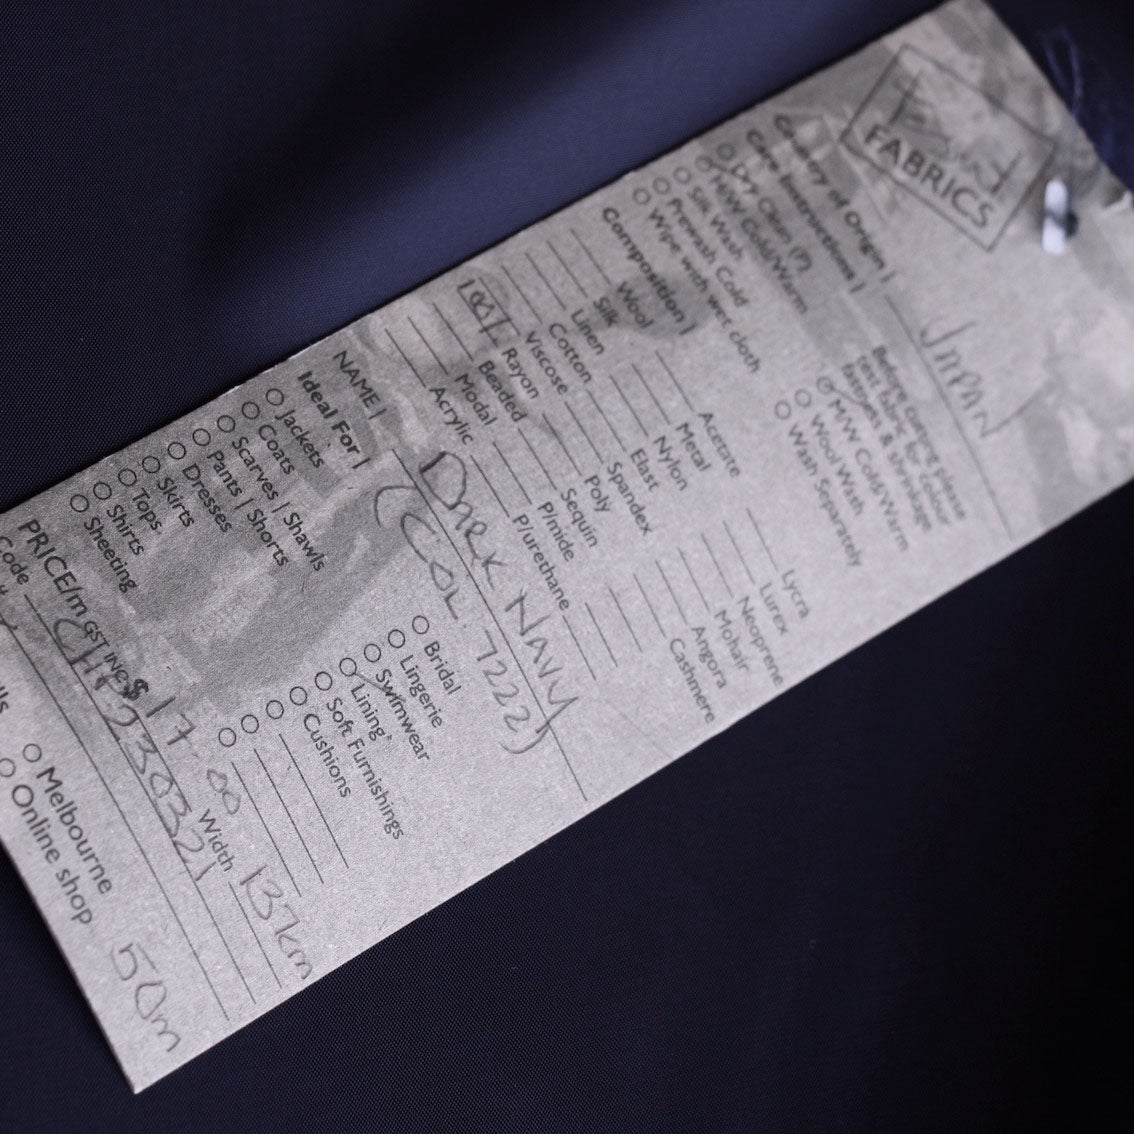 FABRICS
Country of Origin | JAPAN
Care Instructions |
Dry Clean (P)
H/W Cold/Warm
Silk Wash
Prewash Cold
Wipe with wet cloth
Before cutting please
test fabric for colour
fastness & shrinkage
M/W Cold/Warm
Wool Wash
Wash Separately
Composition |
Wool
Silk
Linen
Cotton
Viscose
100% Rayon
Beaded
Modal
Acrylic
Acetate
Metal
Nylon
Elast
Spandex
Poly
Sequin
P/mide
P/urethane
Lycra
Lurex
Neoprene
Mohair
Angora
Cashmere
NAME | DARK NAVY
(COL. 7222)
Ideal For |
Jackets
Coats
Scarves | Shawls
Pants | Shorts
Dresses
Skirts
Tops
Shirts
Sheeting
Bridal
Lingerie
Swimwear
Lining
Soft Furnishings
Cushions
PRICE/m GST INC $ 17.00 Width 137cm
Code
Melbourne
Online shop
50m